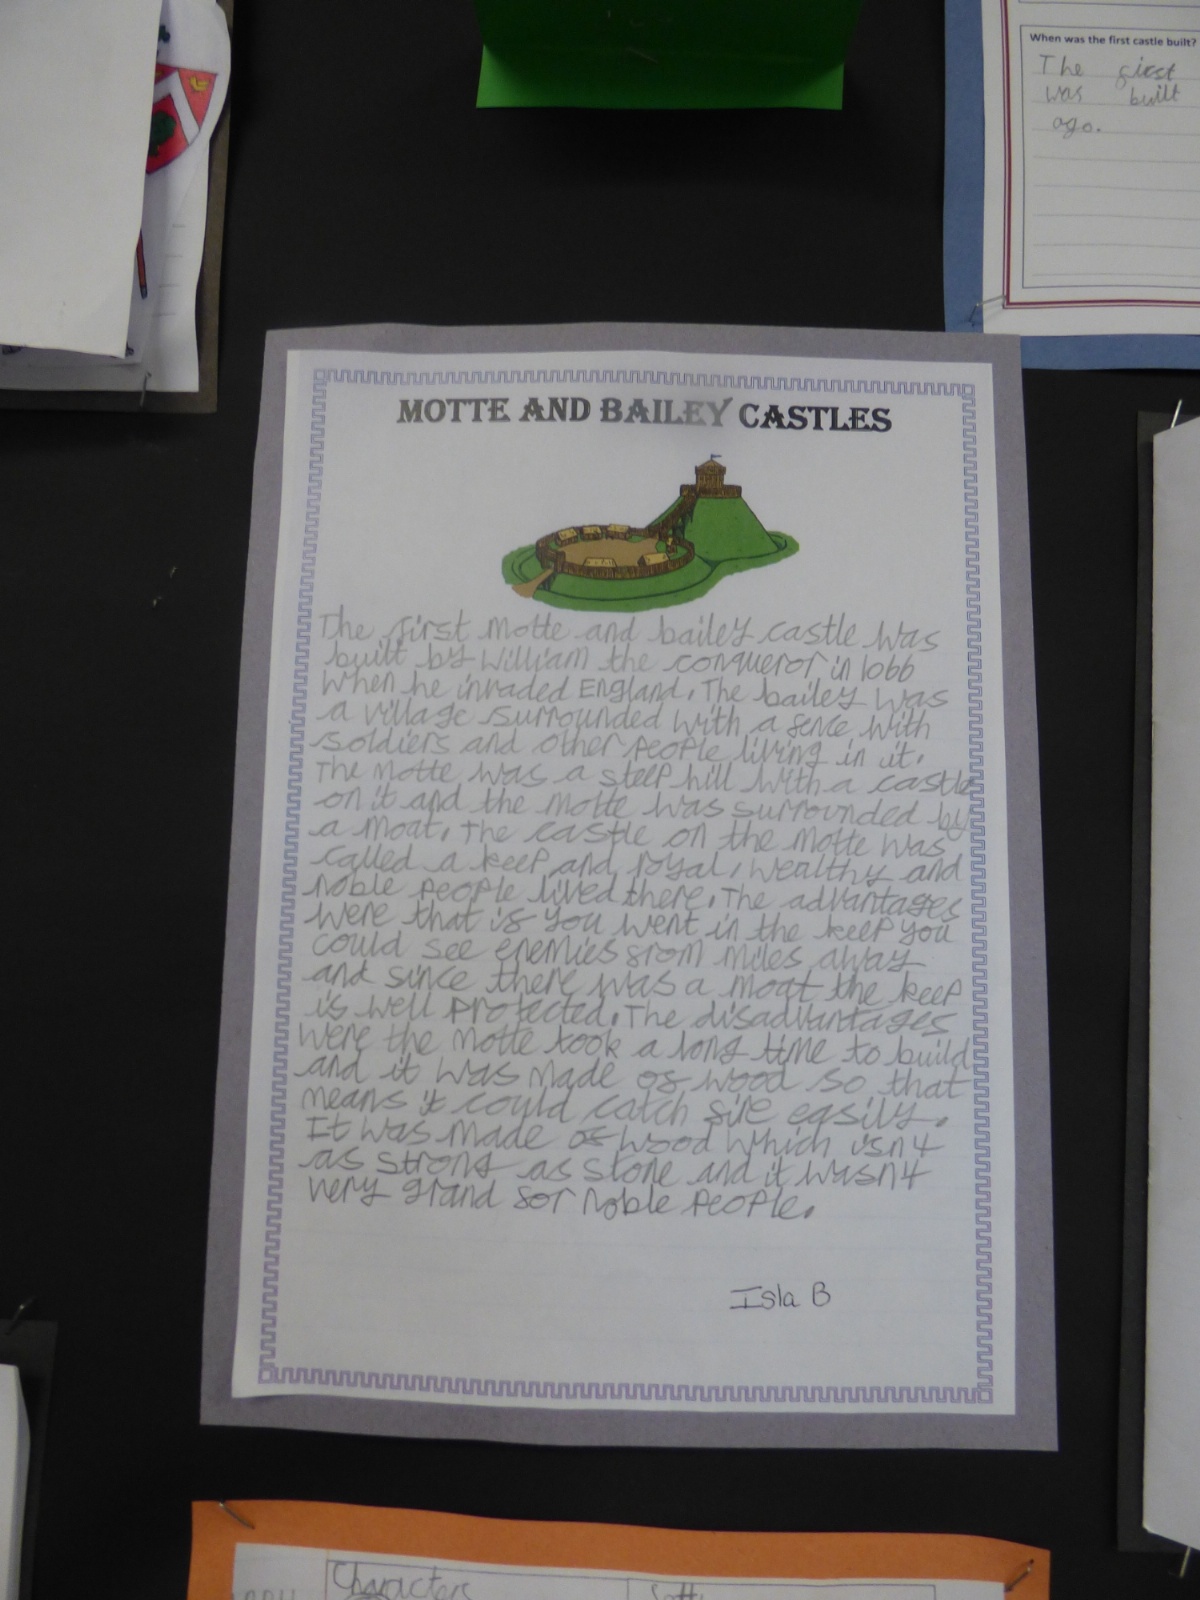 When was the first castle built?
The first
was built
ago.
MOTTE AND BAILEY CASTLES
The first motte and bailey castle was
built by William the conqueror in 1066
when he invaded England. The bailey was
a village surrounded with a fence with
soldiers and other people living in it.
The motte was a steep hill with a castle
on it and the motte was surrounded by
a moat. The castle on the motte was
called a keep and royal, wealthy and
noble people lived there. The advantages
were that if you went in the keep you
could see enemies from miles away
and since there was a moat the keep
is well protected. The disadvantages
were the motte took a long time to build
and it was made of wood so that
means it could catch fire easily.
It was made of wood which isn't
as strong as stone and it wasn't
very grand for noble people.
Isla B
Characters